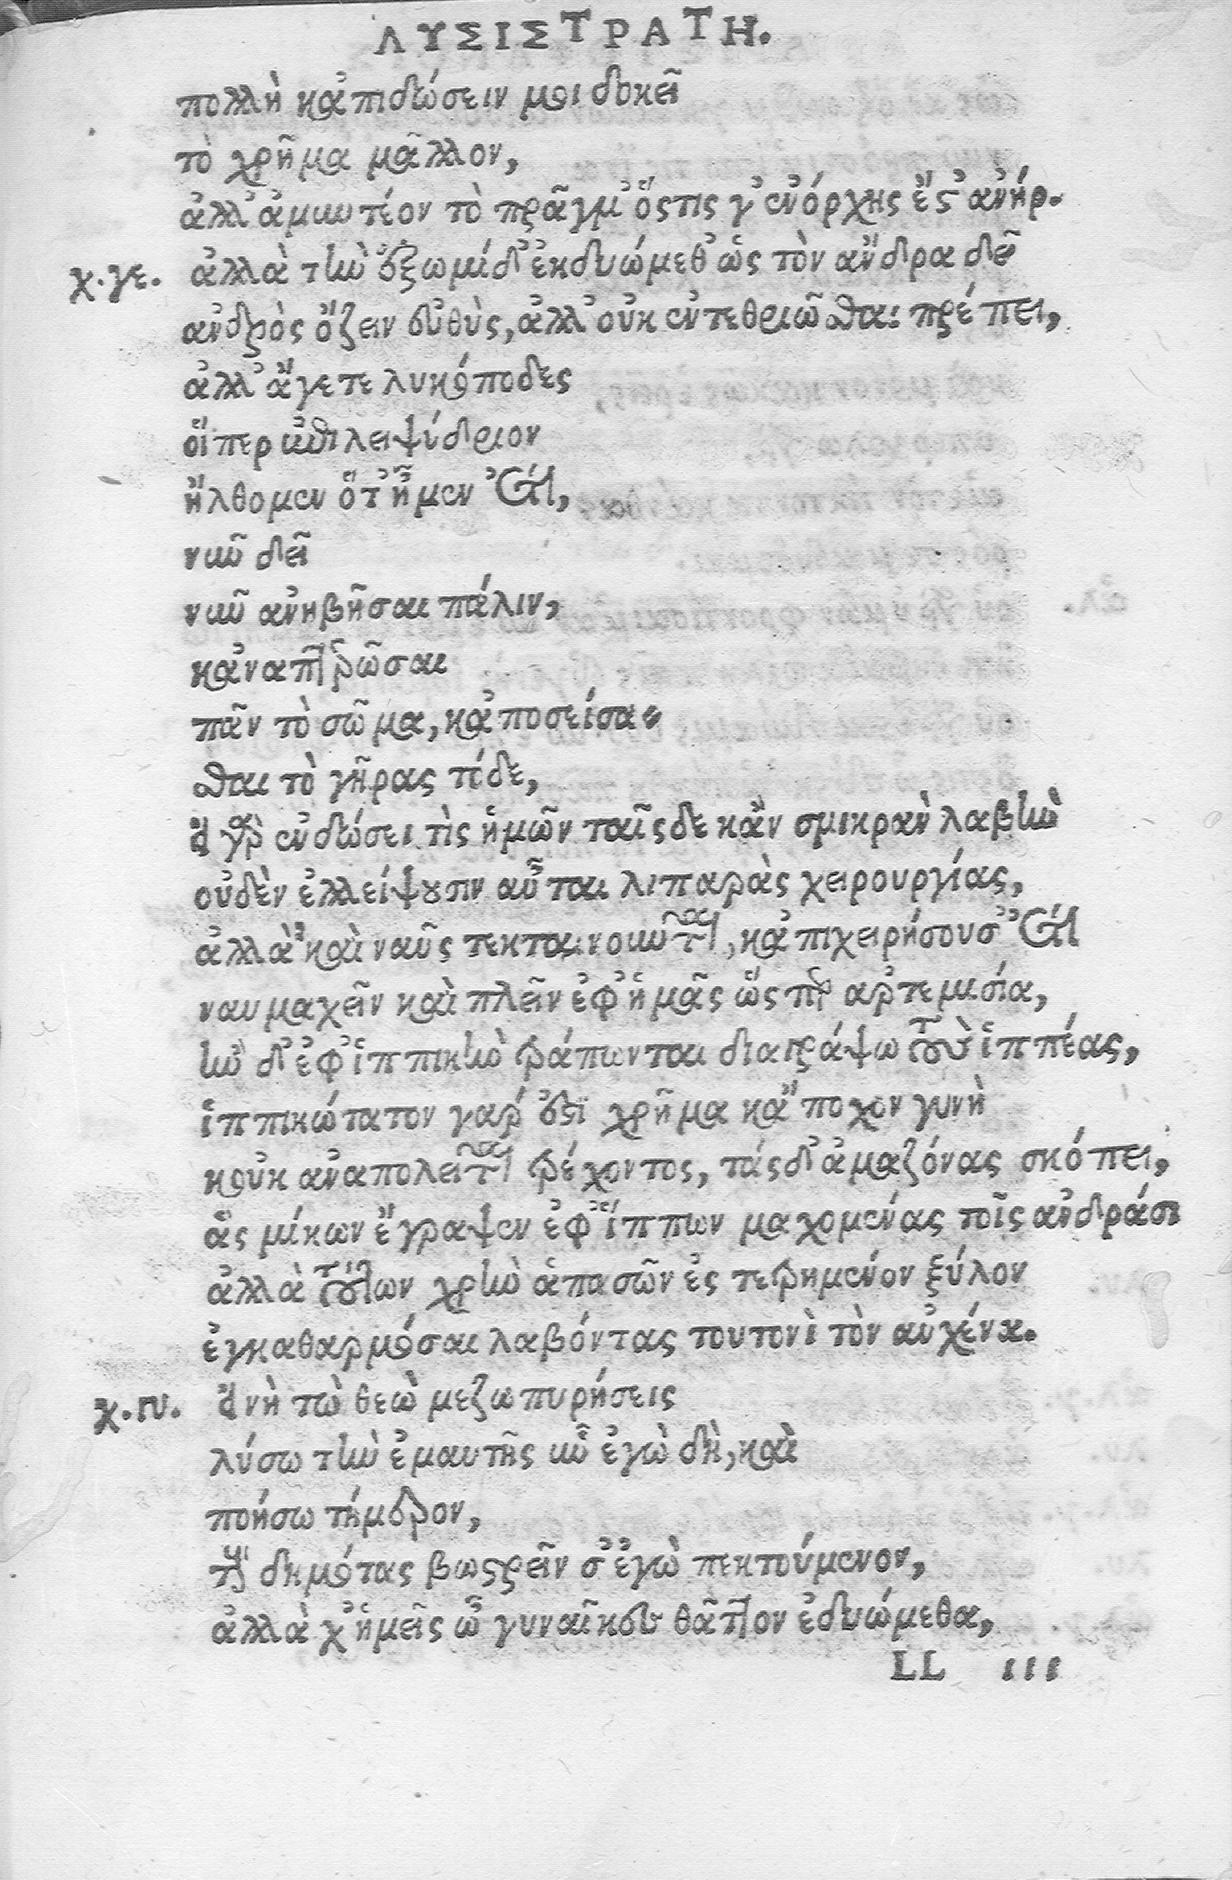 ΛΥΣΙΣΤΡΑΤΗ.
πολλὴ κἀπιδώσειν μοι δοκεῖ
τὸ χρῆμα μᾶλλον,
ἀλλ' ἀμυντέον τὸ πρᾶγμ' ὅςτις γ' ἐνόρχης ἔστ' ἀνήρ.
χ.γε. ἀλλὰ τὴν ἐξωμίδ' ἐκδυώμεθ' ὡς τὸν ἄνδρα δεῖ
ἀνδρὸς ὄζειν εὐθὺς, ἀλλ' οὐκ ἐντεθριῶσθαι πρέπει,
ἀλλ' ἄγετε λυκόποδες
οἵπερ ἐπὶ λειψύδριον
ἤλθομεν ὅτ' ἦμεν ἔτι,
νῦν δεῖ
νῦν ἀνηβῆσαι πάλιν,
κἀναπτερῶσαι
πᾶν τὸ σῶμα, κἀποσείσα-
σθαι τὸ γῆρας τόδε,
εἰ γὰρ ἐνδώσει τὶς ἡμῶν ταῖςδε κἂν σμικρὰν λαβὴν
οὐδὲν ἐλλείψουσιν αὗται λιπαρὰς χειρουργίας,
ἀλλὰ καὶ ναῦς τεκταινοῦνται, κἀπιχειρήσουσ' ἔτι
ναυμαχεῖν καὶ πλεῖν ἐφ' ἡμᾶς ὥςπερ ἀρτεμισία,
ἢν δ' ἐφ' ἱππικὴν τράπωνται διαγράψω τοὺς ἱππέας,
ἱππικώτατον γάρ ἐστι χρῆμα κἄποχον γυνὴ
κοὐκ ἀναπολεῖται τρέχοντος, τάς δ' ἀμαζόνας σκόπει,
ἃς μίκων ἔγραψεν ἐφ' ἵππων μαχομένας τοῖς ἀνδράσι
ἀλλὰ τούτων χρὴν ἁπασῶν ἐς τετρημένον ξύλον
ἐγκαθαρμόσαι λαβόντας τουτονὶ τὸν αὐχένα.
χ.γυ. εἰ νὴ τὼ θεὼ με ζωπυρήσεις
λύσω τὴν ἐμαυτῆς ὗν ἐγὼ δὴ, καὶ
ποήσω τήμερον,
τοὺς δημότας βωςρεῖν σ' ἐγὼ πεκτούμενον,
ἀλλὰ χ' ἡμεῖς ὦ γυναῖκες θᾶττον ἐδυώμεθα,
LL iii